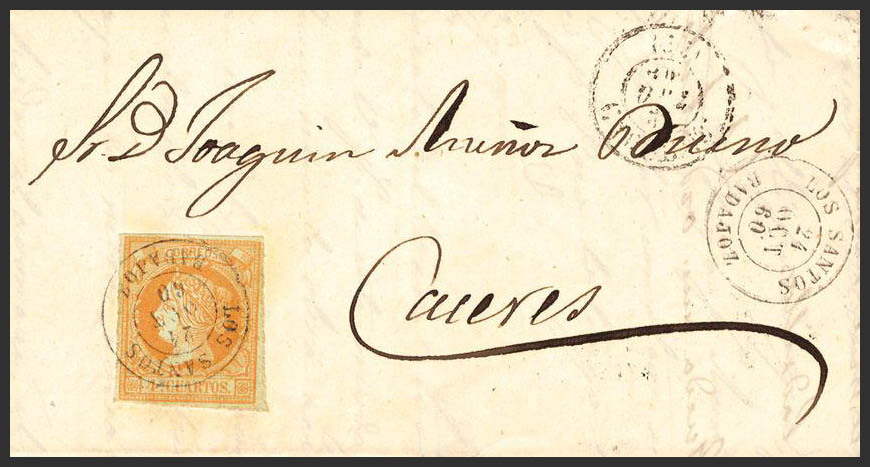 Sr. D. Joaquin Muñoz Bueno
Caceres
LOS SANTOS
24
OCT
60
BADAJOZ
CORREOS
4 CUARTOS.
LOS SANTOS
24
60
BADAJOZ